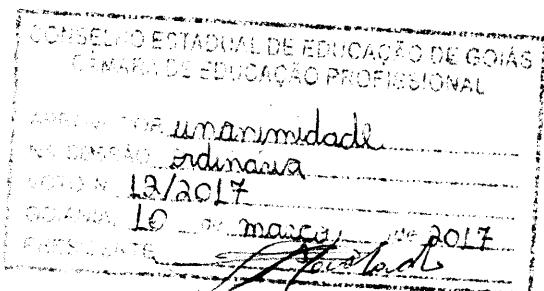 CONSELHO ESTADUAL DE EDUCAÇÃO DE GOIÁS
CÂMARA DE EDUCAÇÃO PROFISSIONAL
APROVADO POR unanimidade
NA SESSÃO ordinária
VOTO N. 12/2017
GOIÂNIA, 10 DE março DE 2017
PRESIDENTE